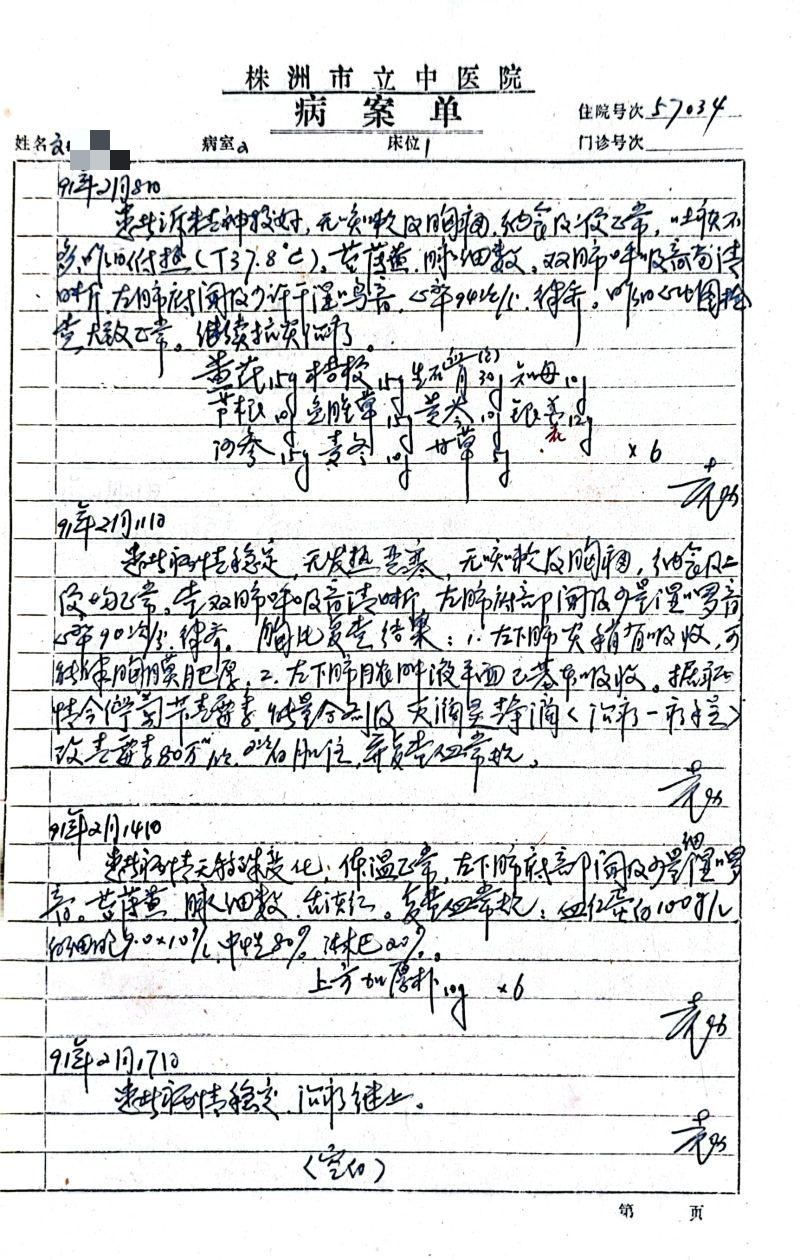 株洲市立中医院
病案单
住院号次 57034
姓名 病室2 床位1 门诊号次
91年2月8日
患者诉精神较好,无咳嗽及胸痛,纳食及二便正常,吐痰不
多,昨仍付热(T37.8℃),苔薄黄,脉细数。双肺呼吸音尚清
晰,左肺底闻及少许干湿鸣音,心率94次/分,律齐。昨日心电图检
查大致正常。继续抗炎治疗。
黄芪15g 桔梗15g 生石膏30g 知母10g
芦根10g 鱼腥草15g 黄芩10g 银花12g
沙参15g 麦冬10g 甘草5g
×6
91年2月11日
患者病情稳定,无发热恶寒,无咳嗽及胸痛,纳食及二
便均正常。查双肺呼吸音清晰,左肺底部闻及少量湿啰音
心率90次/分,律齐。胸片复查结果:1.左下肺炎稍有吸收,可
能伴胸膜肥厚,2.左下肺脓肿液平面已基本吸收。据病
情今停 青霉素 及灭滴灵静滴(治疗一疗程)
改青霉素80万 肌注,并复查血常规。
91年2月14日
患者病情无特殊变化,体温正常,左下肺底部闻及少量细湿啰
音。苔薄黄,脉细数,舌淡红。复查血常规:血红蛋白100g/L,
白细胞9.0×10⁹/L,中性80%,淋巴20%。
上方加厚朴10g ×6
91年2月17日
患者病情稳定,治疗继上。
(空白)
第 页